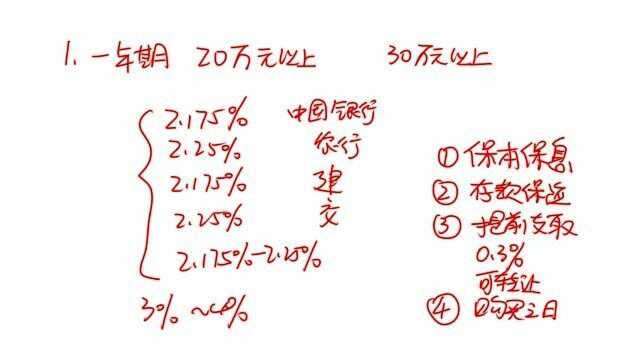 1. 一年期 20万元以上 30万元以上
2.175% 中国银行
2.25% 农行
2.175% 建
2.25% 交
2.175%-2.25%
3%~4%
① 保本保息
② 存款保
③ 提前支取
0.3%
可转让
④ 购买之日